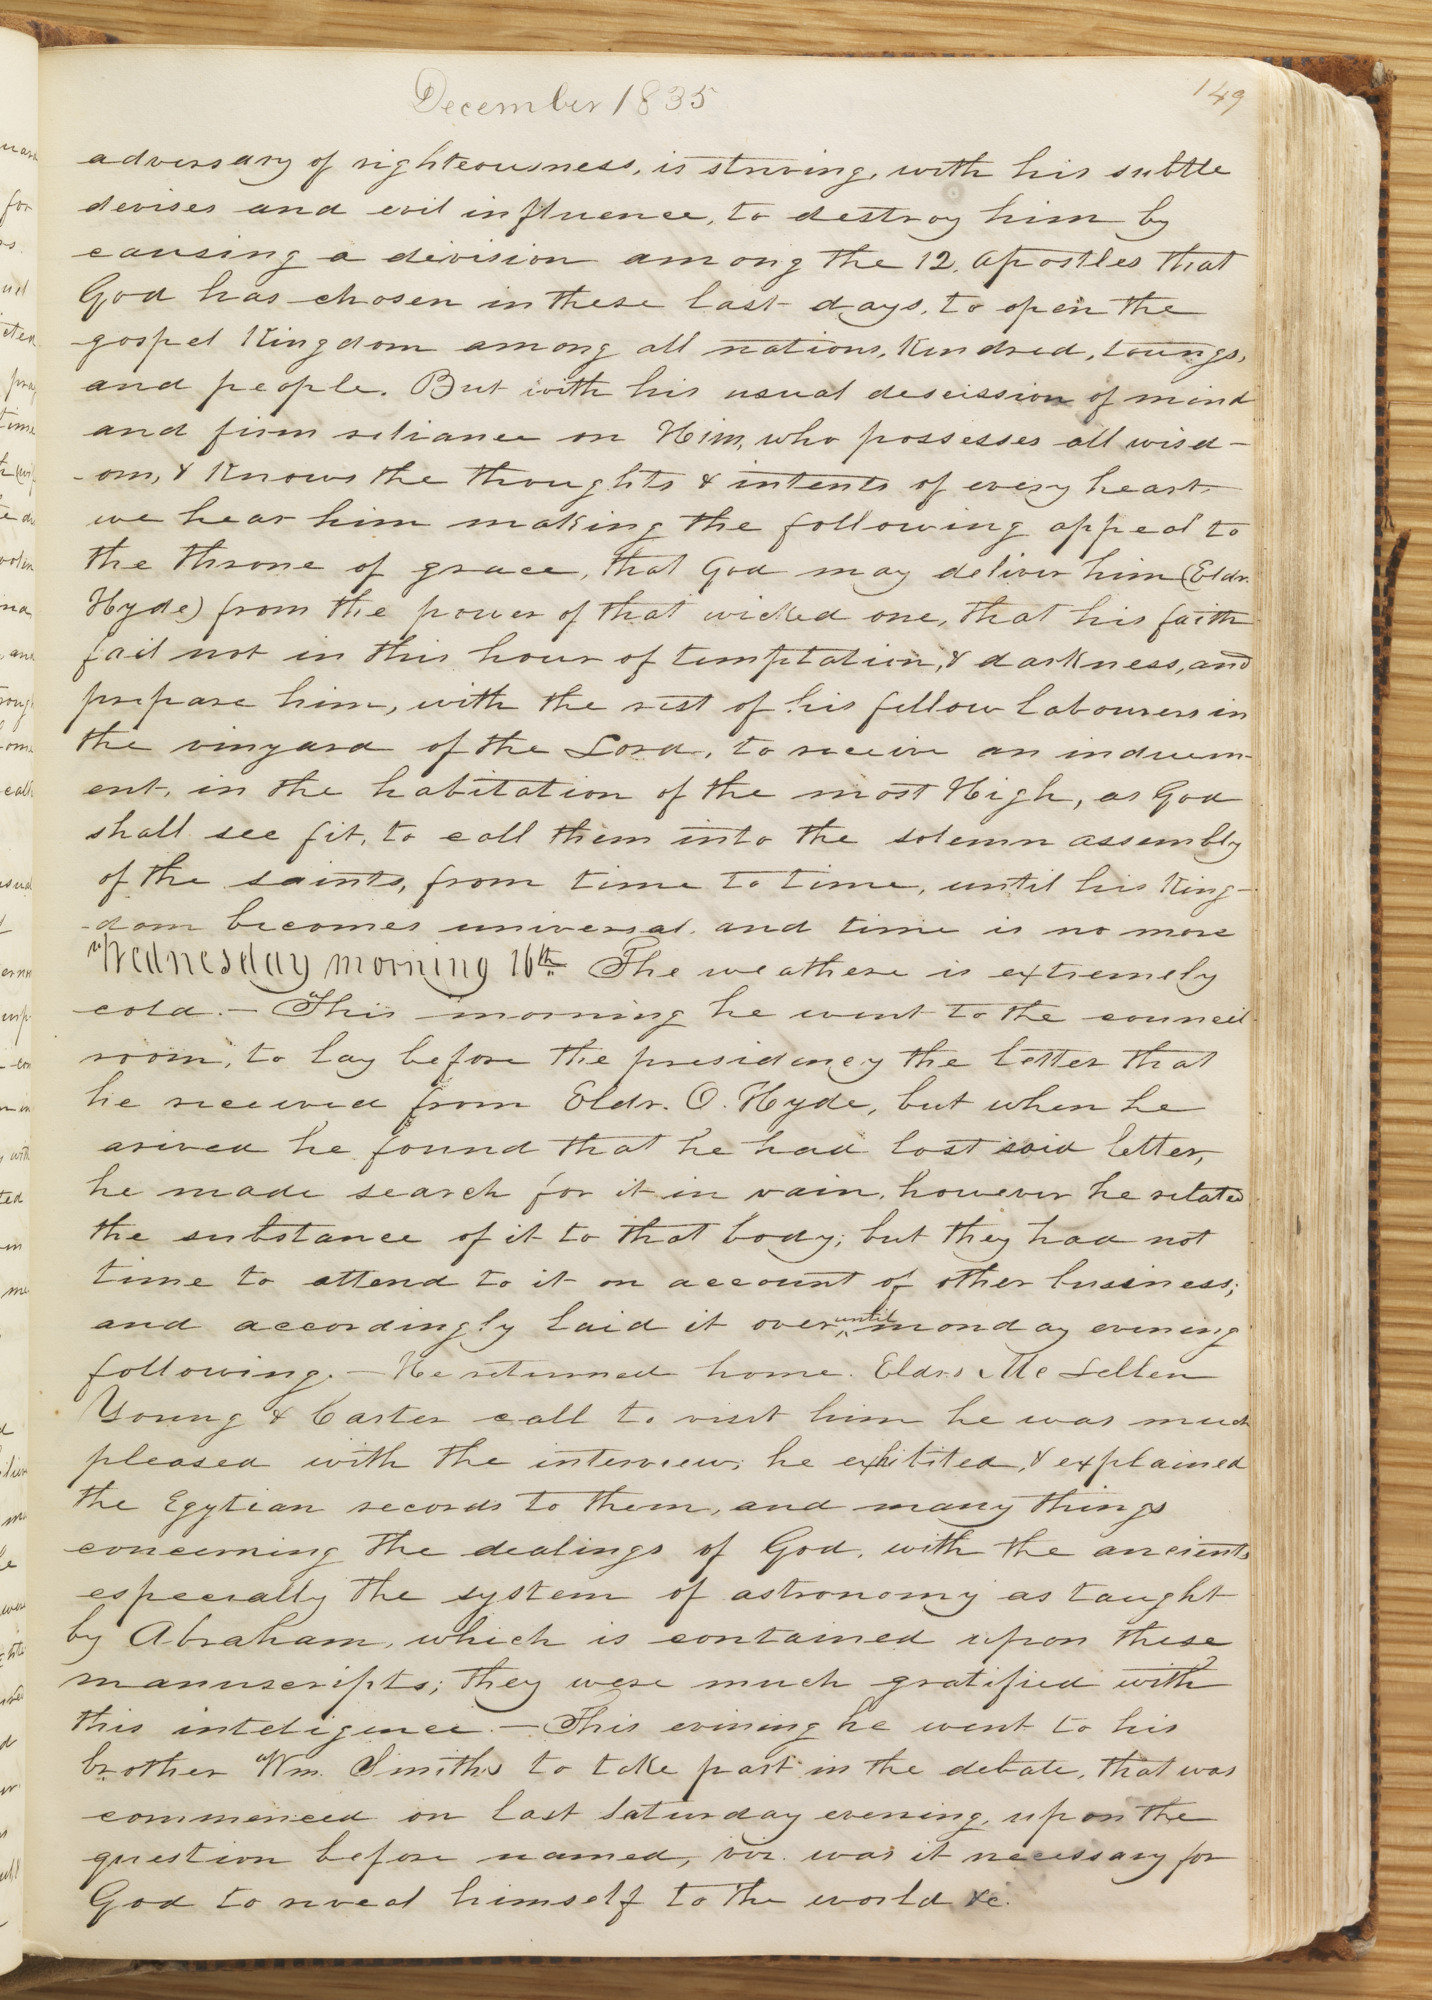 December 1835
149
adversary of righteousness, is striving, with his subtle
devises and evil influence, to destroy him by
causing a devision among the 12, apostles that
God has chosen in these last days, to open the
gospel Kingdom among all nations, Kindred, toungs,
and people. But with his usual descission of mind
and firm reliance on Him, who possesses all wisd-
-om, & Knows the thoughts & intents of every heart,
we hear him making the following appeal to
the throne of grace, that God may deliver him (Eldr.
Hyde) from the power of that wicked one, that his faith
fail not in this hour of temptation, & darkness, and
prepare him, with the rest of his fellow labourers in
the vinyard of the Lord, to receive an induem-
ent, in the habitation of the most High, as God
shall see fit, to call them into the solemn assembly
of the saints, from time to time, until his King-
-dom becomes universal, and time is no more
Wednesday morning 16th. The weathere is extremely
cold. — This morning he went to the council
room, to lay before the presidency the letter that
he received from Eldr. O. Hyde, but when he
arived he found that he had lost said letter,
he made search for it in vain, however he related
the substance of it to that body; but they had not
time to attend to it on account of other business;
and accordingly laid it over, until monday evening
following. — He returned home. Eldrs McLellen
Young & Carter call to visit him he was much
pleased with the interview; he exhibited, & explained
the Egytian records to them, and many things
concerning the dealings of God, with the ancients
especially the system of astronomy as taught
by Abraham, which is contained upon these
manuscripts; they were much gratified with
this inteligence. — This evining he went to his
brother Wm. Smiths to take part in the debate, that was
commenced on last saturday evening, upon the
question before named, viz. was it necessary for
God to reveal himself to the world &c.